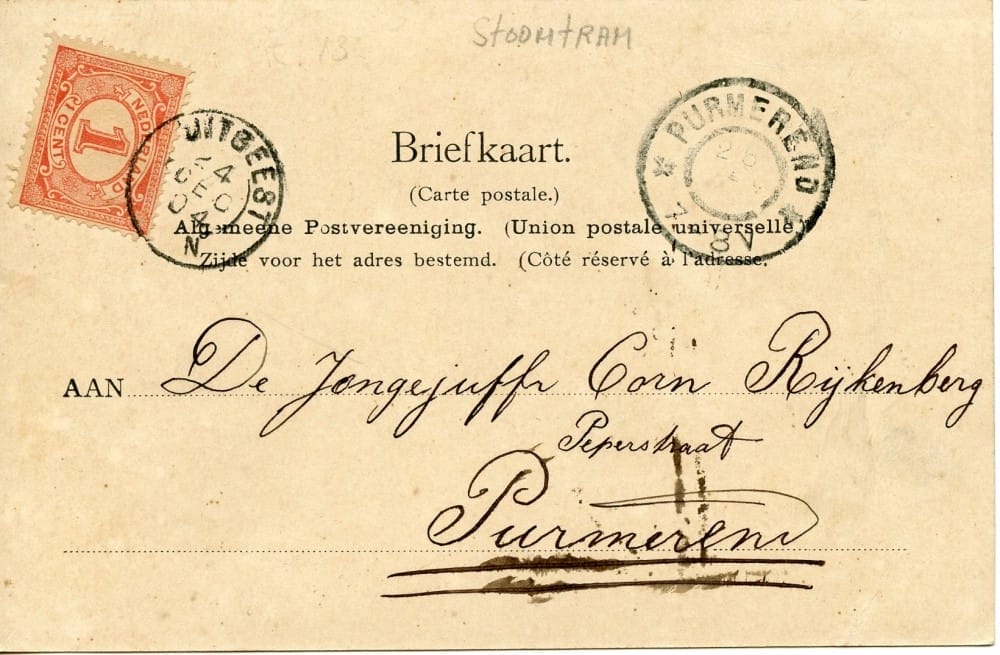 STOOMTRAM
13
NEDERLAND
1
1 CENT
UITGEEST
24
DE
04
N
PURMEREND
7 - 8 V
Briefkaart.
(Carte postale.)
Algemeene Postvereeniging. (Union postale universelle.)
Zijde voor het adres bestemd. (Côté réservé à l'adresse.
AAN De Jongejuffr Corn Rijkenberg
Peperstraat
Purmerend